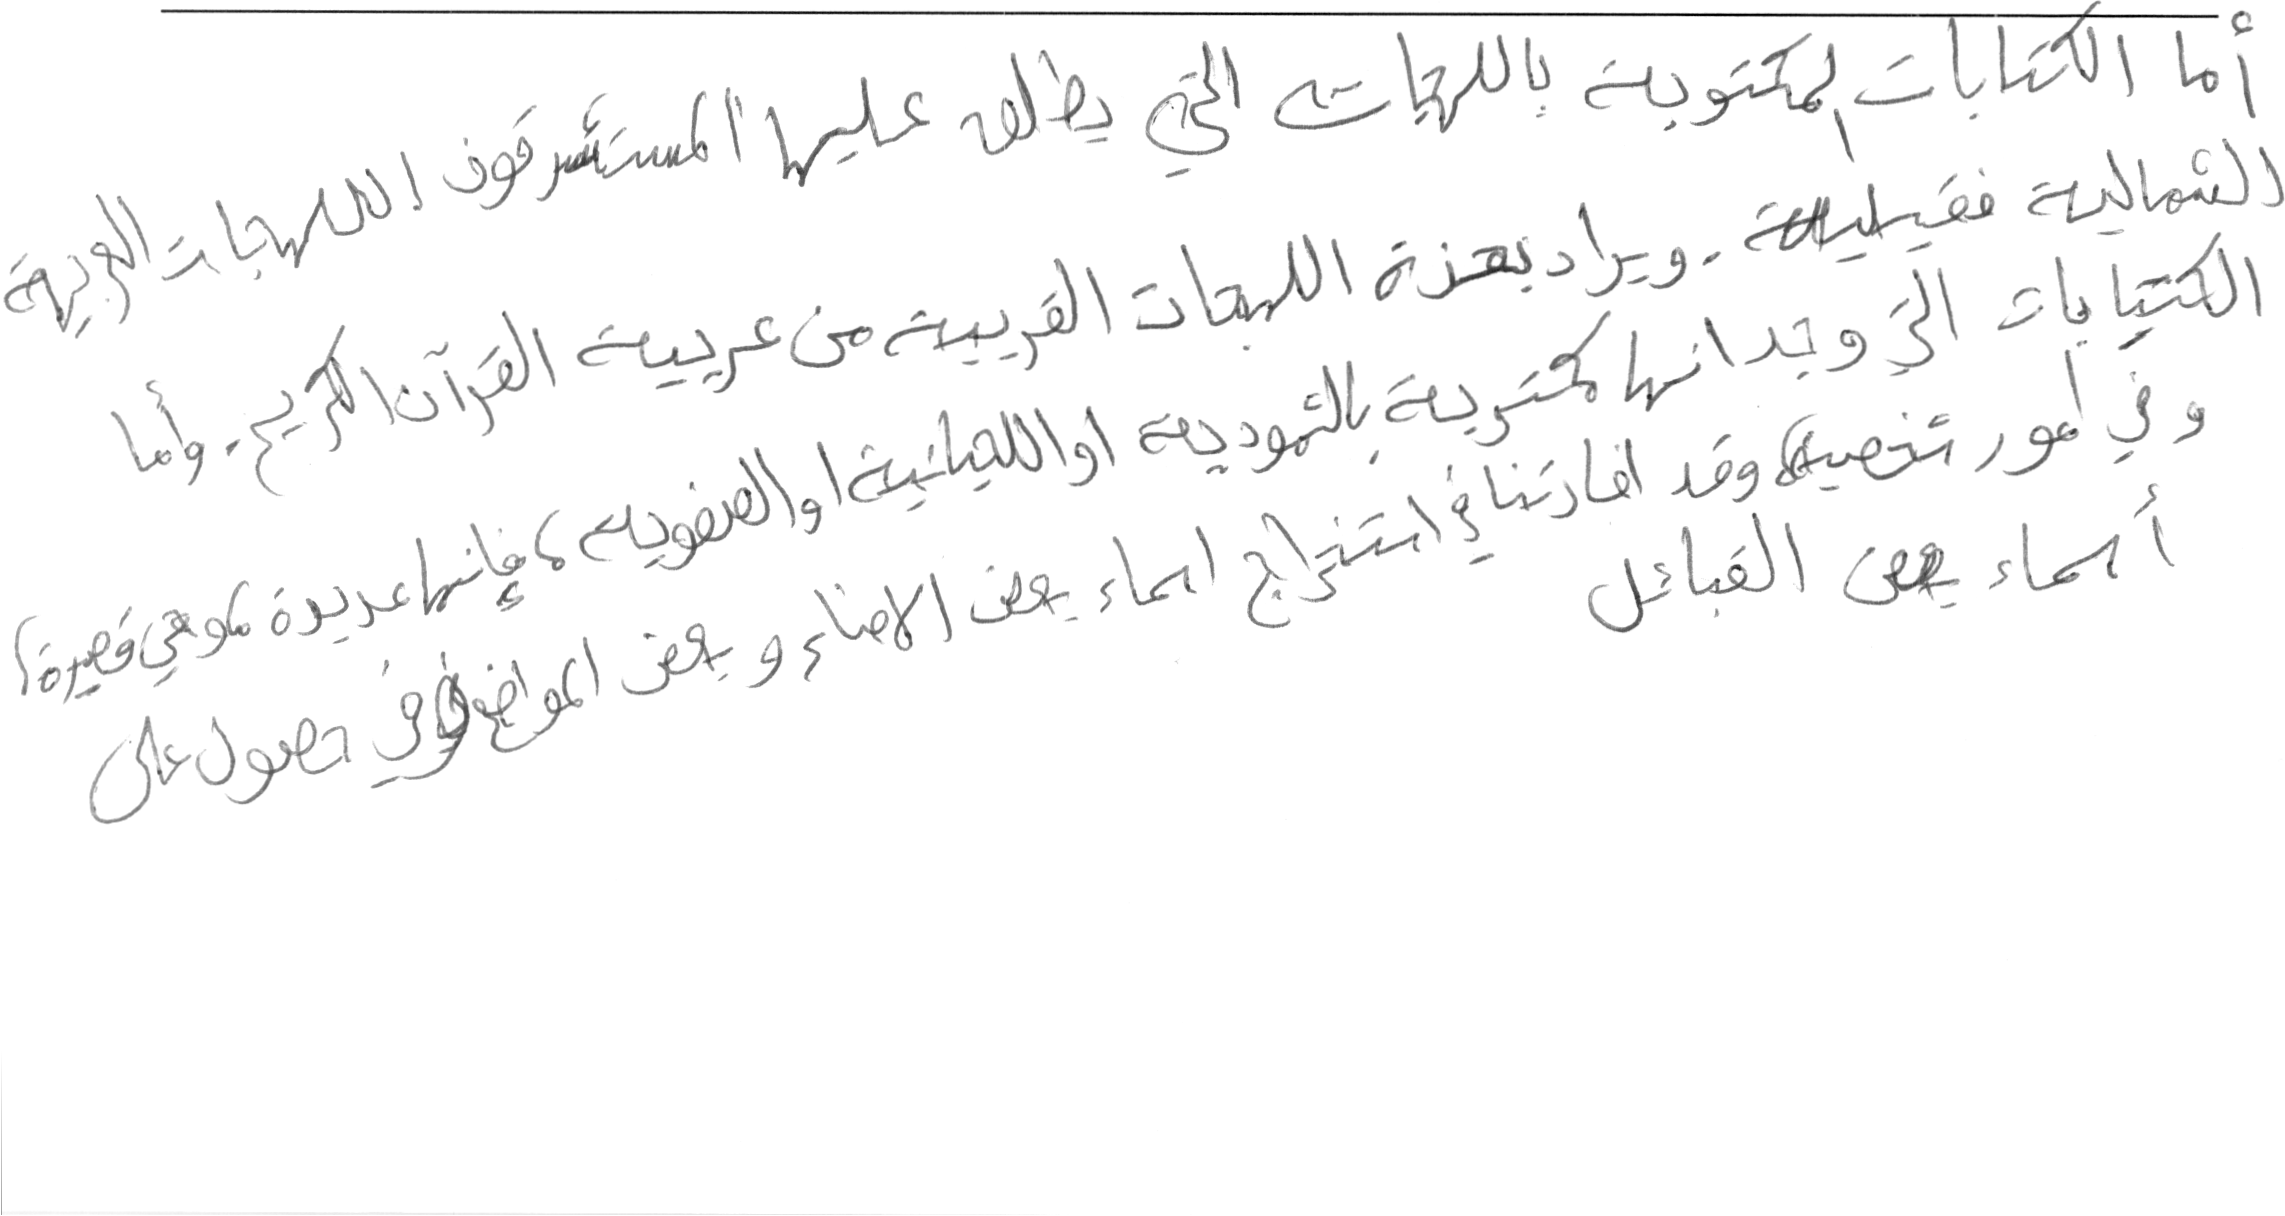 أما الكتابات المكتوبة باللهجات التي يطلق عليها المستشرقون اللهجات العربية
الشمالية فقليلة. ويراد بهذة اللهجات القريبة من عربية القرآن الكريم. وأما
الكتابات التي وجد انها مكتوبة بالثمودية او اللحيانية او الصفوية، فإنها عديدة، وهي قصيرة،
وفي أمور شخصية، وقد افادتنا في استخراج اسماء بعض الاصنام وبعض المواضع وفي حصول على
أسماء بعض القبائل